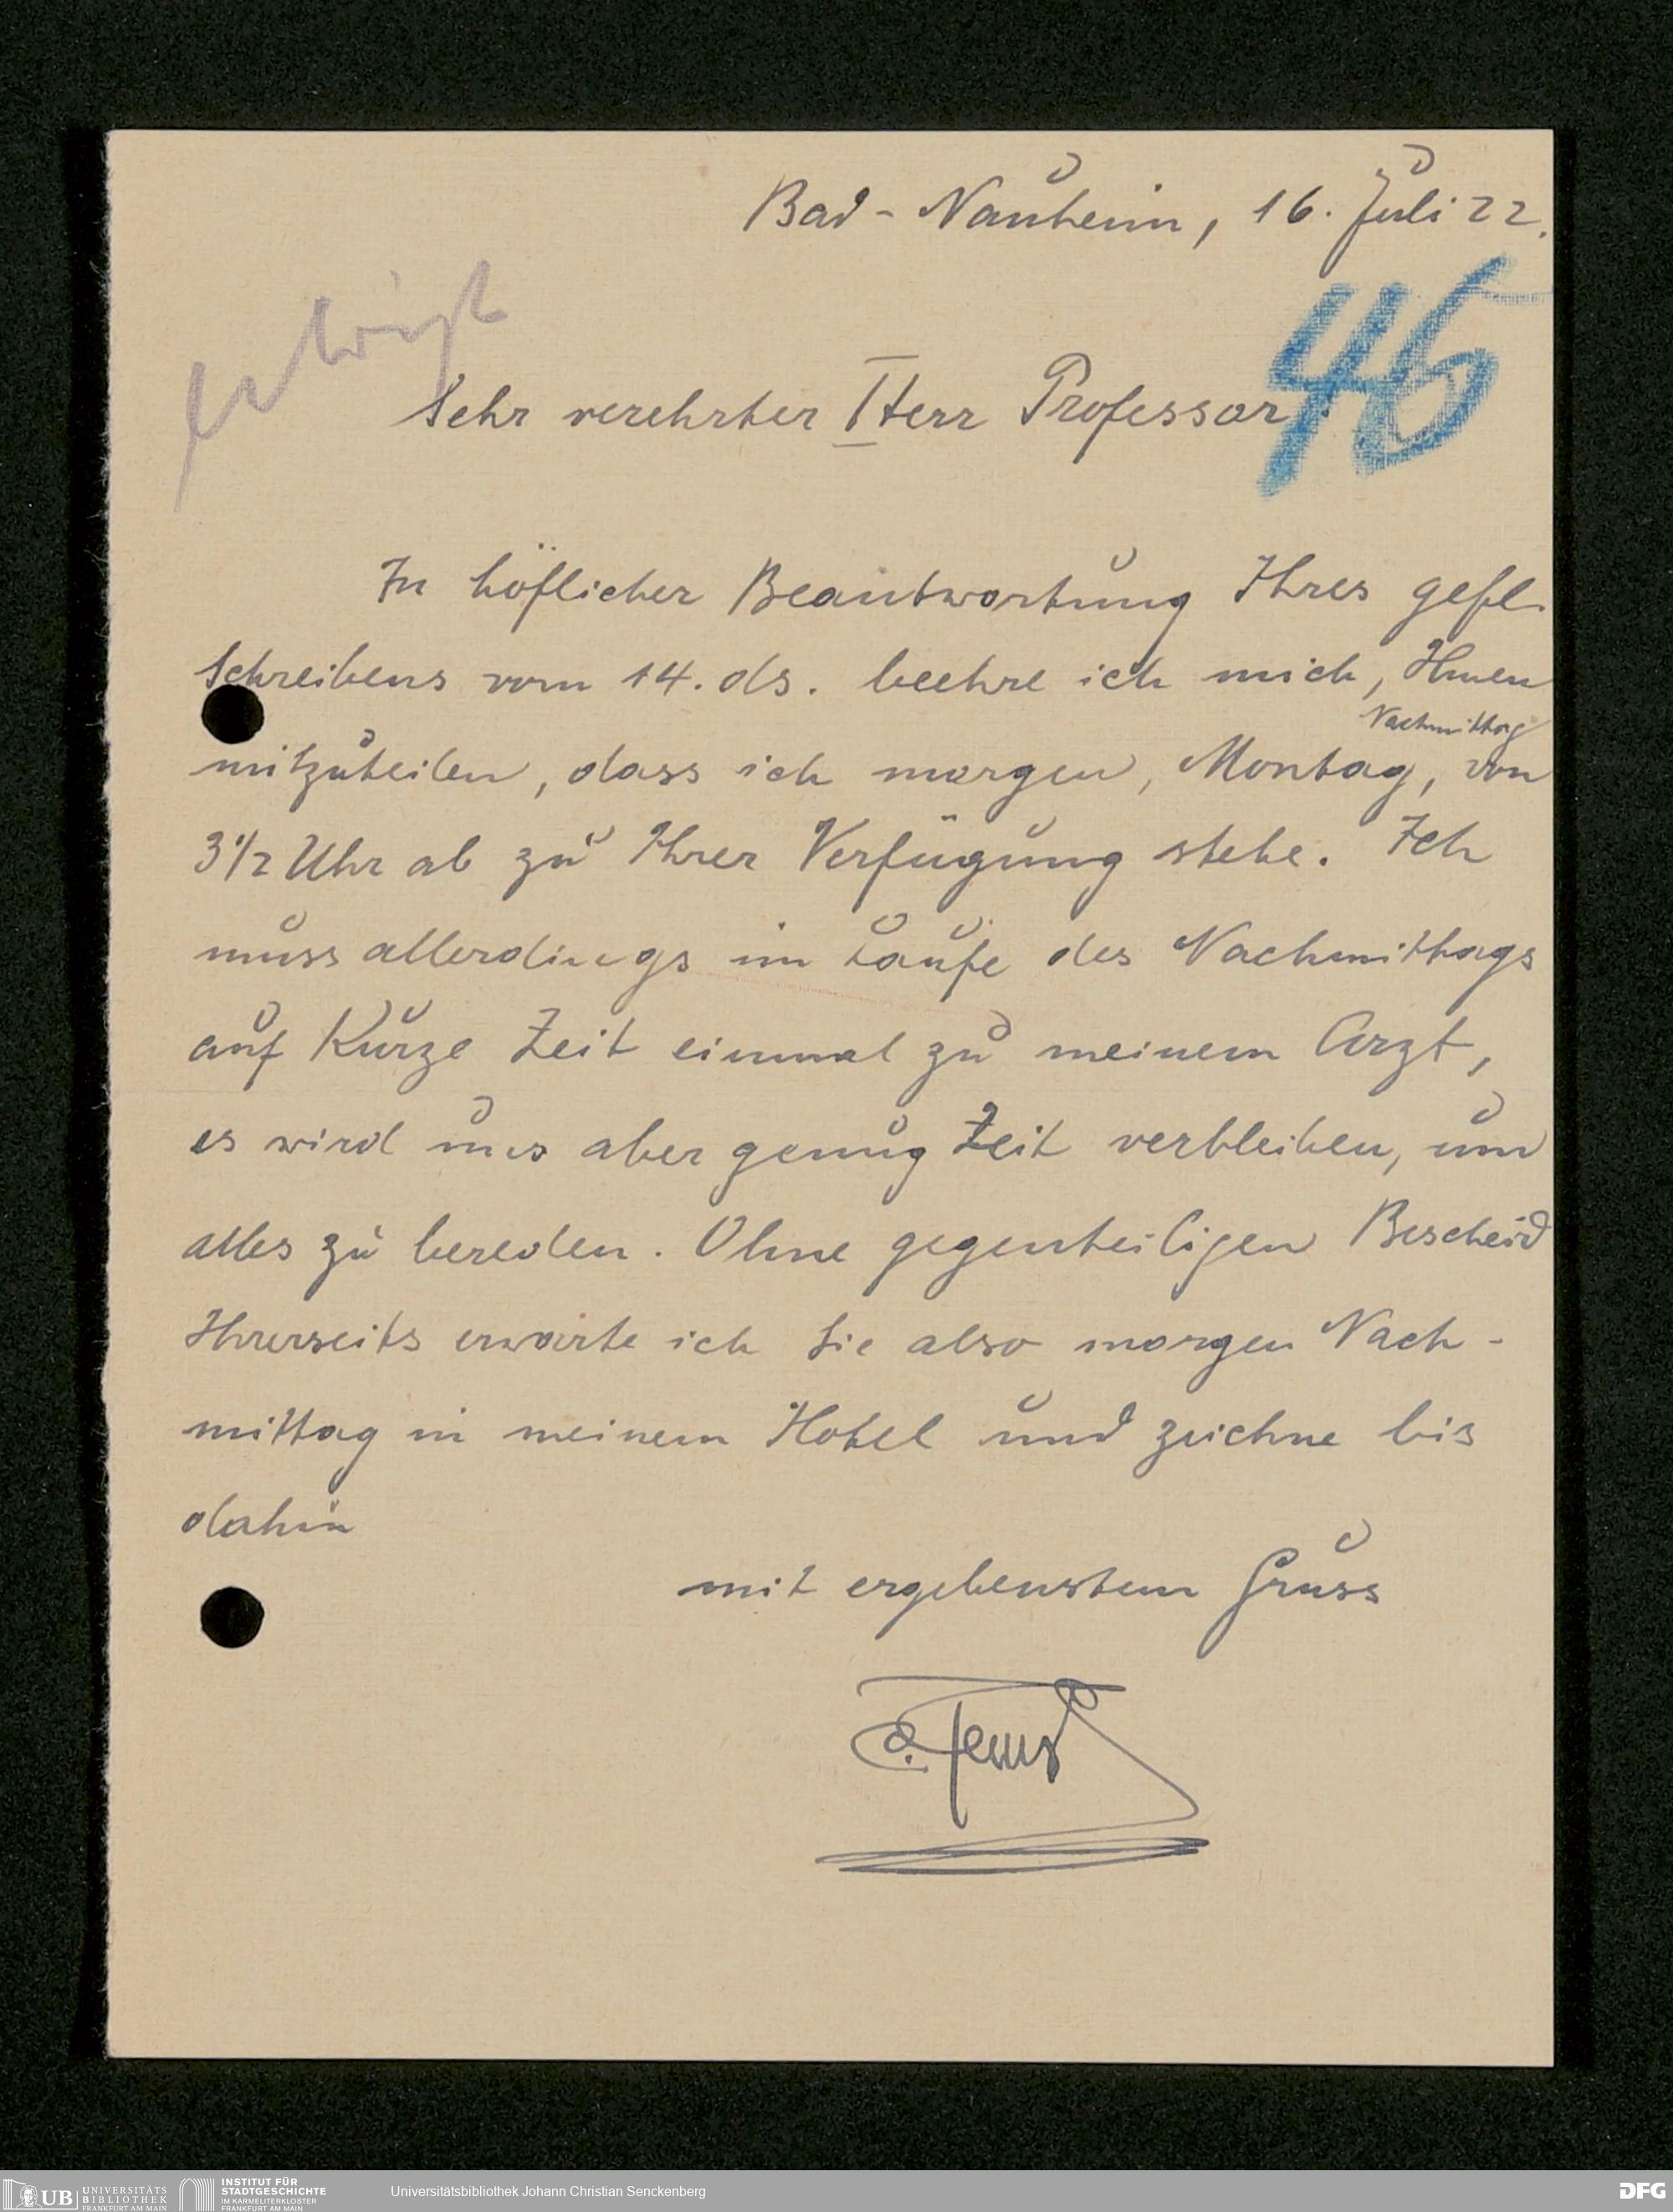 Bad-Nauheim, 16. Juli 22.
erledigt
46
Sehr verehrter Herr Professor!
In höflicher Beantwortung Ihres gefl.
Schreibens vom 14. ds. beehre ich mich, Ihnen
Nachmittag
mitzuteilen, dass ich morgen, Montag, von
3 1/2 Uhr ab zu Ihrer Verfügung stehe. Ich
muss allerdings im Laufe des Nachmittags
auf kurze Zeit einmal zu meinem Arzt,
es wird uns aber genug Zeit verbleiben, um
alles zu bereden. Ohne gegenteiligen Bescheid
Ihrerseits erwarte ich Sie also morgen Nach-
mittag in meinem Hotel und zeichne bis
dahin
mit ergebenstem Gruss
UB UNIVERSITÄTS
BIBLIOTHEK
FRANKFURT AM MAIN
INSTITUT FÜR
STADTGESCHICHTE
IM KARMELITERKLOSTER
FRANKFURT AM MAIN
Universitätsbibliothek Johann Christian Senckenberg
DFG